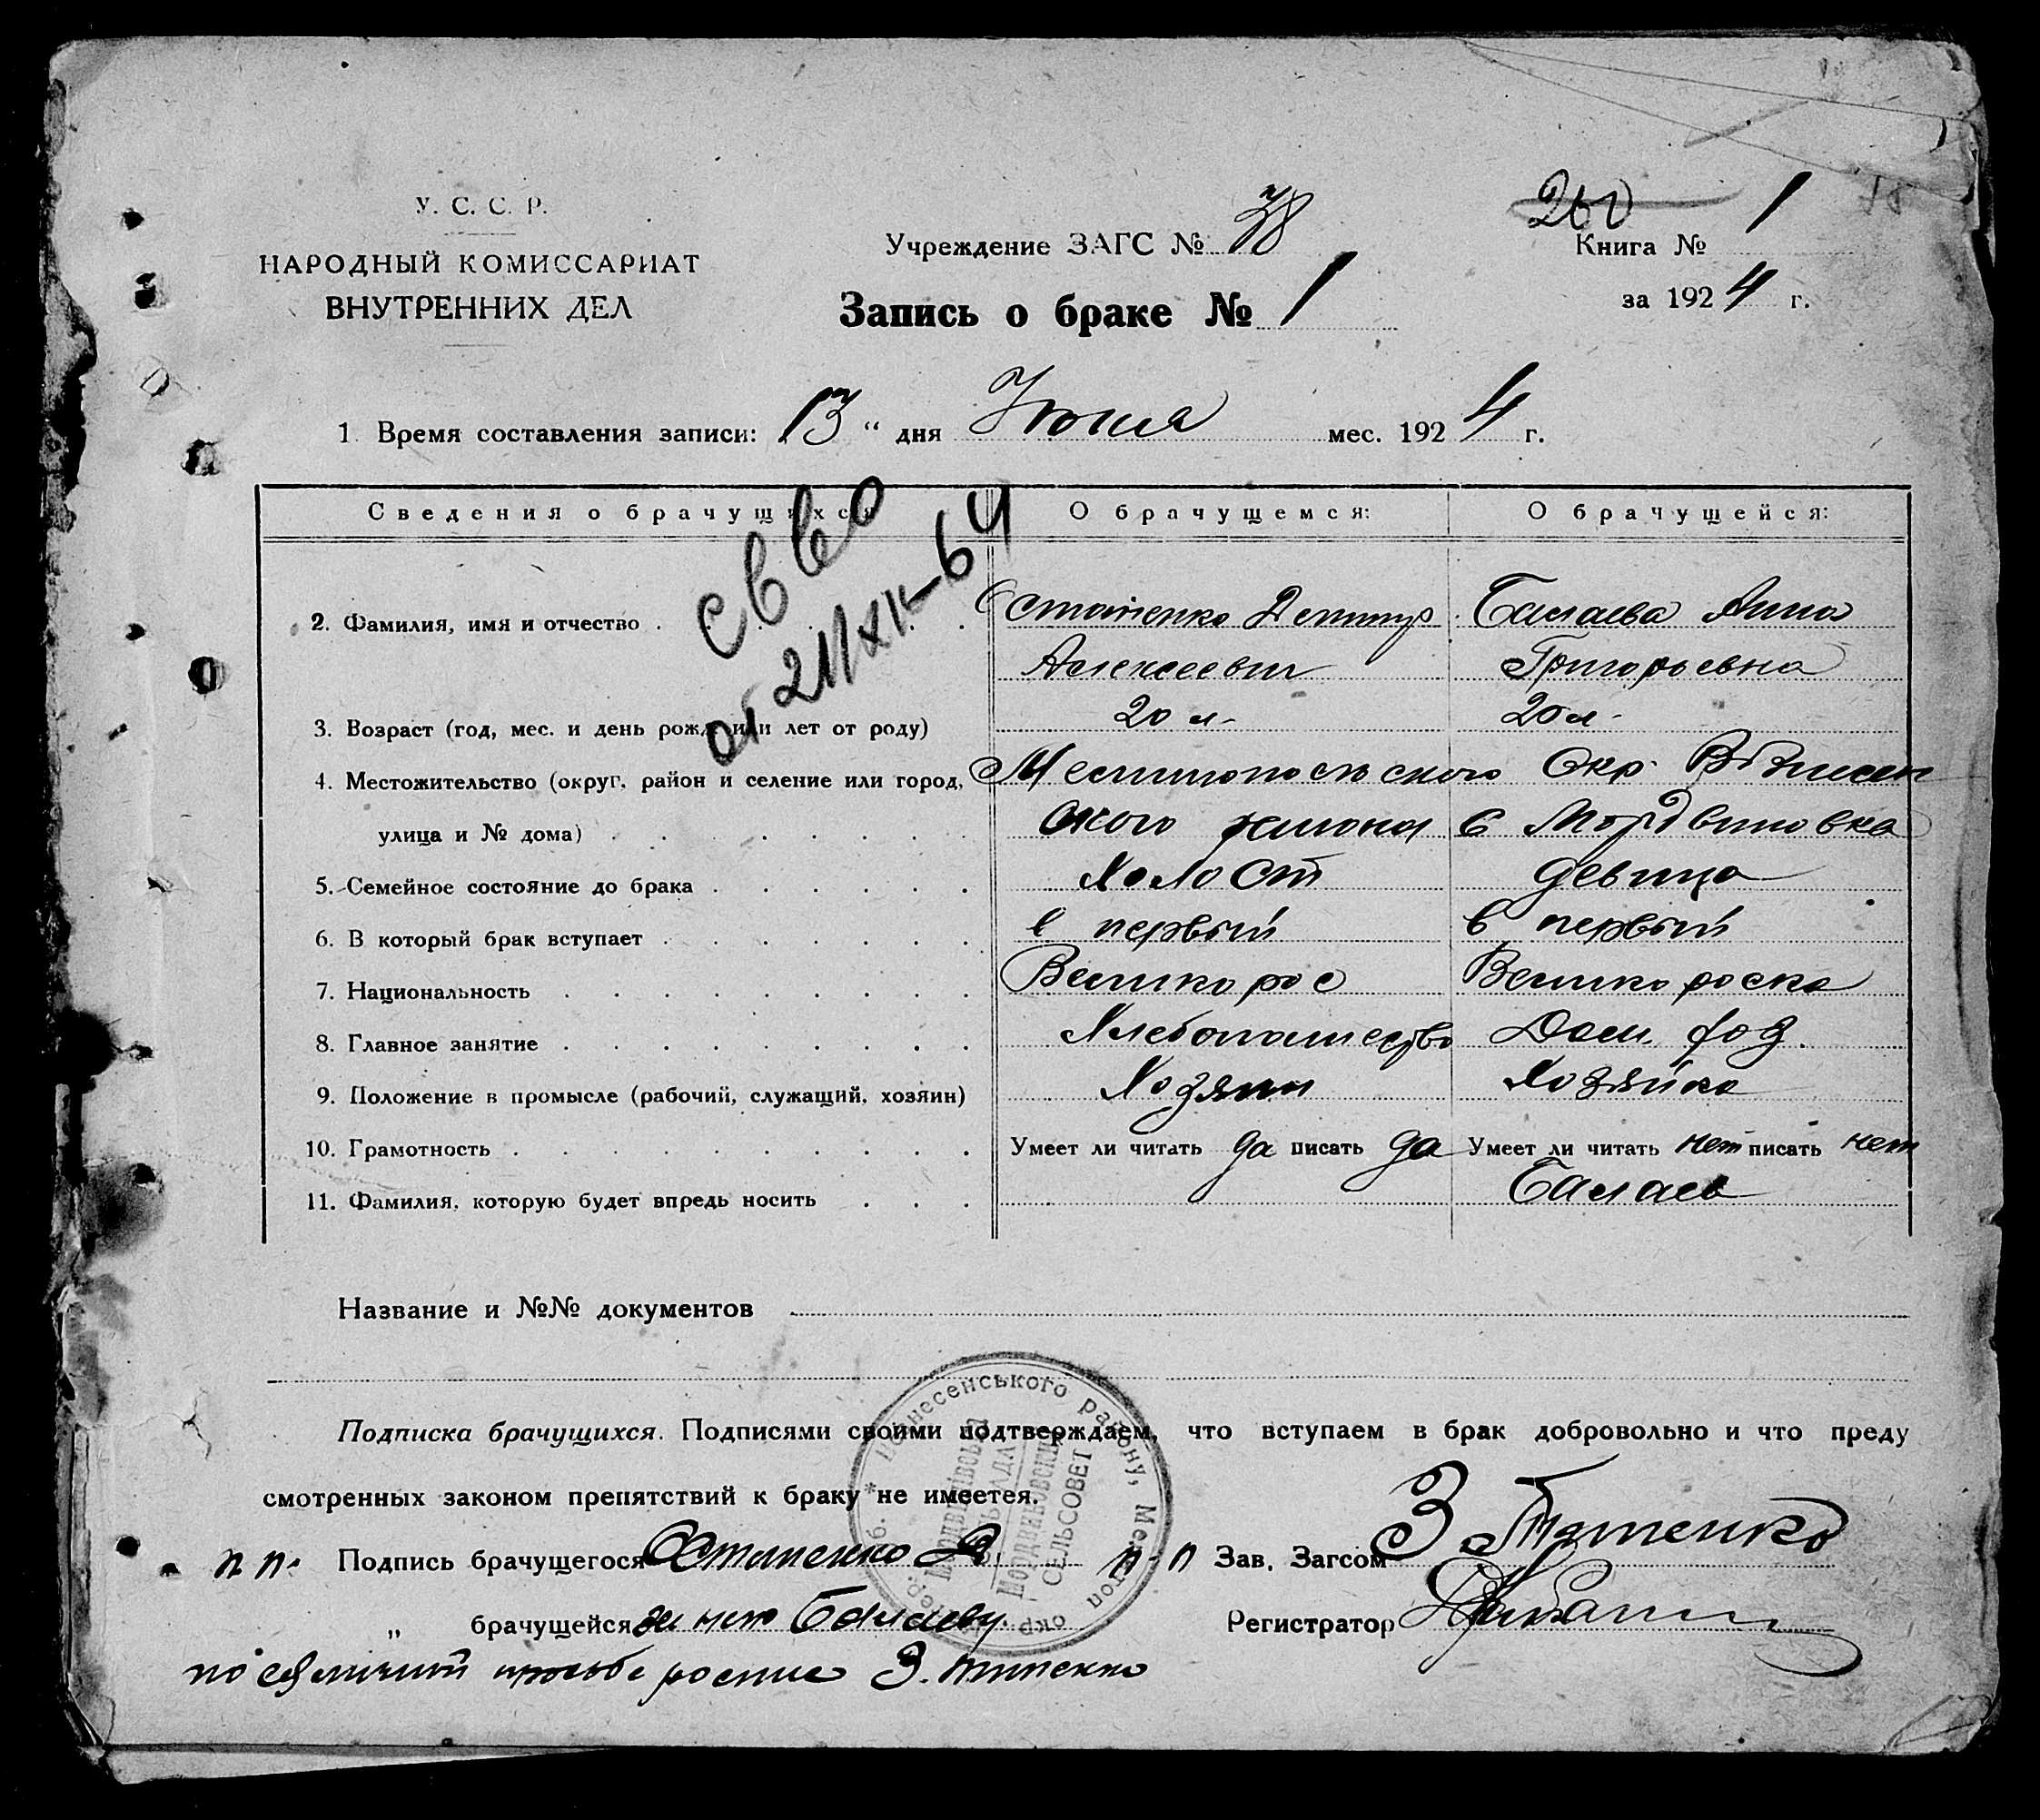 У. С. С. Р.
НАРОДНЫЙ КОМИССАРИАТ
ВНУТРЕННИХ ДЕЛ
Учреждение ЗАГС № 38
260 1
Книга №
за 1924 г.
Запись о браке № 1
1 Время составления записи: 13 " дня Июня мес. 1924 г.
Сведения о брачущихся О брачущемся: О брачущейся:
2. Фамилия, имя и отчество . Балаева Анна
Алексеевич Григорьевна
3. Возраст (год, мес. и день рожд. или лет от роду) 20 л- 20 л-
4. Местожительство (округ, район и селение или город, Мелитопольского Окр.
улица и № дома) ского района с Мордвиновка
5. Семейное состояние до брака Холост девица
6. В который брак вступает в первый в первый
7. Национальность Великорос Великороска
8. Главное занятие Хлебопашество Дом. хоз.
9. Положение в промысле (рабочий, служащий, хозяин) Хозяин Хозяйка
10. Грамотность Умеет ли читать да писать да Умеет ли читать нет писать нет
11. Фамилия, которую будет впредь носить Балаев
от 21/XII-64
Название и №№ документов
Подписка брачущихся. Подписями своими подтверждаем, что вступаем в брак добровольно и что преду
смотренных законом препятствий к браку не имеется.
п п. Подпись брачущегося п-п Зав. Загсом З
" брачущейся Балаеву. Регистратор
по З.
району, Мелітоп окр
СЕЛЬСОВЕТ